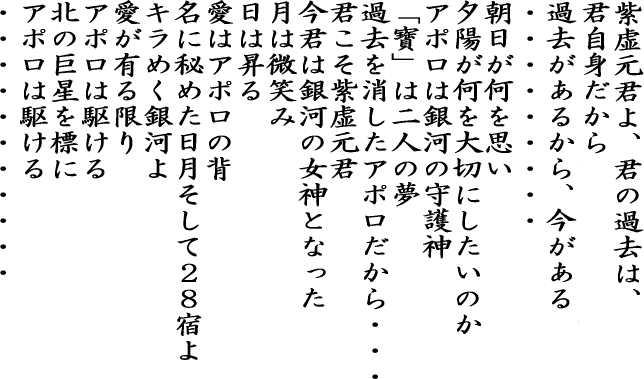 紫虚元君よ、君の過去は、
君自身だから
過去があるから、今がある
・・・・・・・・・・・・
朝日が何を思い
夕陽が何を大切にしたいのか
アポロは銀河の守護神
「寶」は二人の夢
過去を消したアポロだから・・・
君こそ紫虚元君
今君は銀河の女神となった
月は微笑み
日は昇る
愛はアポロの背
名に秘めた日月そして２８宿よ
キラめく銀河よ
愛が有る限り
アポロは駆ける
北の巨星を標に
アポロは駆ける
・・・・・・・・・・・・・・